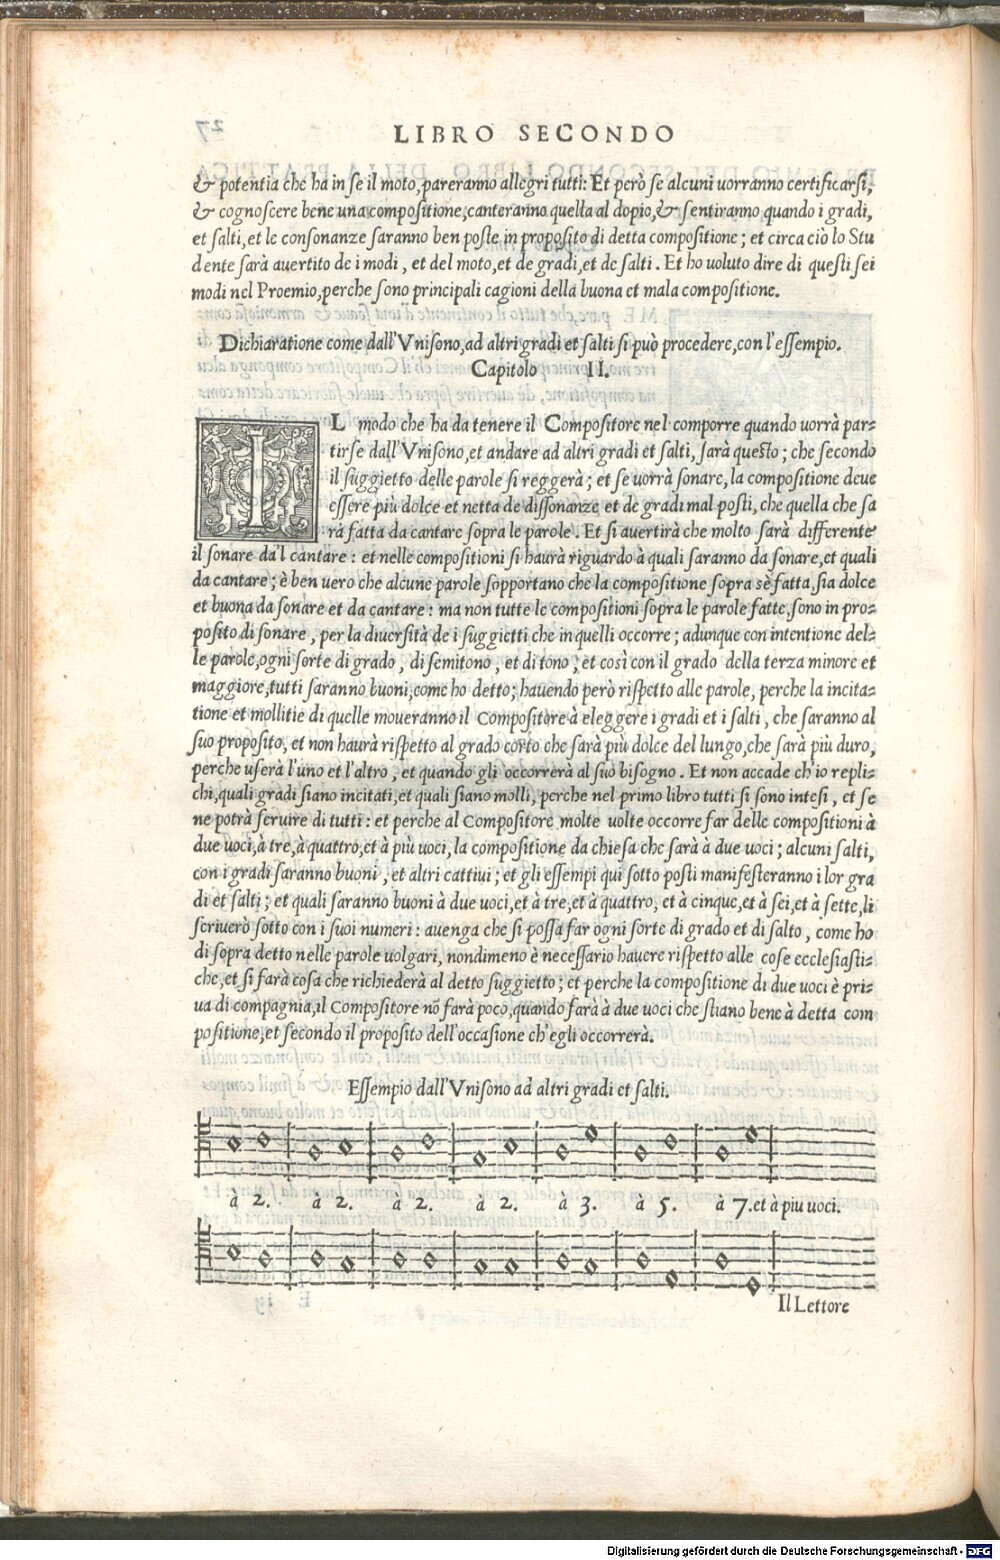 LIBRO SECONDO
& potentia che ha in se il moto, pareranno allegri tutti: Et però se alcuni uorranno certificarsi,
& cognoscere bene una compositione, canteranno quella al dopio, & sentiranno quando i gradi,
et salti, et le consonanze saranno ben poste in proposito di detta compositione; et circa ciò lo Stu
dente sarà auertito de i modi, et del moto, et de gradi, et de salti. Et ho uoluto dire di questi sei
modi nel Proemio, perche sono principali cagioni della buona et mala compositione.
Dichiaratione come dall'Vnisono, ad altri gradi et salti si può procedere, con l'essempio.
Capitolo II.
IL modo che ha da tenere il Compositore nel comporre quando uorrà par=
tirse dall'Vnisono, et andare ad altri gradi et salti, sarà questo; che secondo
il suggietto delle parole si reggerà; et se uorrà sonare, la compositione deue
essere più dolce et netta de dissonanze et de gradi mal posti, che quella che sa
rà fatta da cantare sopra le parole. Et si auertirà che molto sarà differente
il sonare da'l cantare: et nelle compositioni si haurà riguardo à quali saranno da sonare, et quali
da cantare; è ben uero che alcune parole sopportano che la compositione sopra sè fatta, sia dolce
et buona da sonare et da cantare: ma non tutte le compositioni sopra le parole fatte, sono in pro=
posito di sonare, per la diuersità de i suggietti che in quelli occorre; adunque con intentione del=
le parole, ogni sorte di grado, di semitono, et di tono; et così con il grado della terza minore et
maggiore, tutti saranno buoni, come ho detto; hauendo però rispetto alle parole, perche la incita=
tione et mollitie di quelle moueranno il Compositore à eleggere i gradi et i salti, che saranno al
suo proposito, et non haurà rispetto al grado corto che sarà più dolce del lungo, che sarà più duro,
perche userà l'uno et l'altro, et quando gli occorrerà al suo bisogno. Et non accade ch'io repli=
chi, quali gradi siano incitati, et quali siano molli, perche nel primo libro tutti si sono intesi, et se
ne potrà seruire di tutti: et perche al Compositore molte uolte occorre far delle compositioni à
due uoci, à tre, à quattro, et à più uoci, la compositione da chiesa che sarà à due uoci; alcuni salti,
con i gradi saranno buoni, et altri cattiui; et gli essempi qui sotto posti manifesteranno i lor gra
di et salti; et quali saranno buoni à due uoci, et à tre, et à quattro, et à cinque, et à sei, et à sette, li
scriuerò sotto con i suoi numeri: auenga che si possa far ogni sorte di grado et di salto, come ho
di sopra detto nelle parole uolgari, nondimeno è necessario hauere rispetto alle cose ecclesiasti=
che, et si farà cosa che richiederà al detto suggietto; et perche la compositione di due uoci è pri=
ua di compagnia, il Compositore nõ farà poco, quando farà à due uoci che stiano bene à detta com
positione, et secondo il proposito dell'occasione ch'egli occorrerà.
Essempio dall'Vnisono ad altri gradi et salti.
à 2. à 2. à 2. à 2. à 3. à 5. à 7. et à piu uoci.
Il Lettore
Digitalisierung gefördert durch die Deutsche Forschungsgemeinschaft - DFG